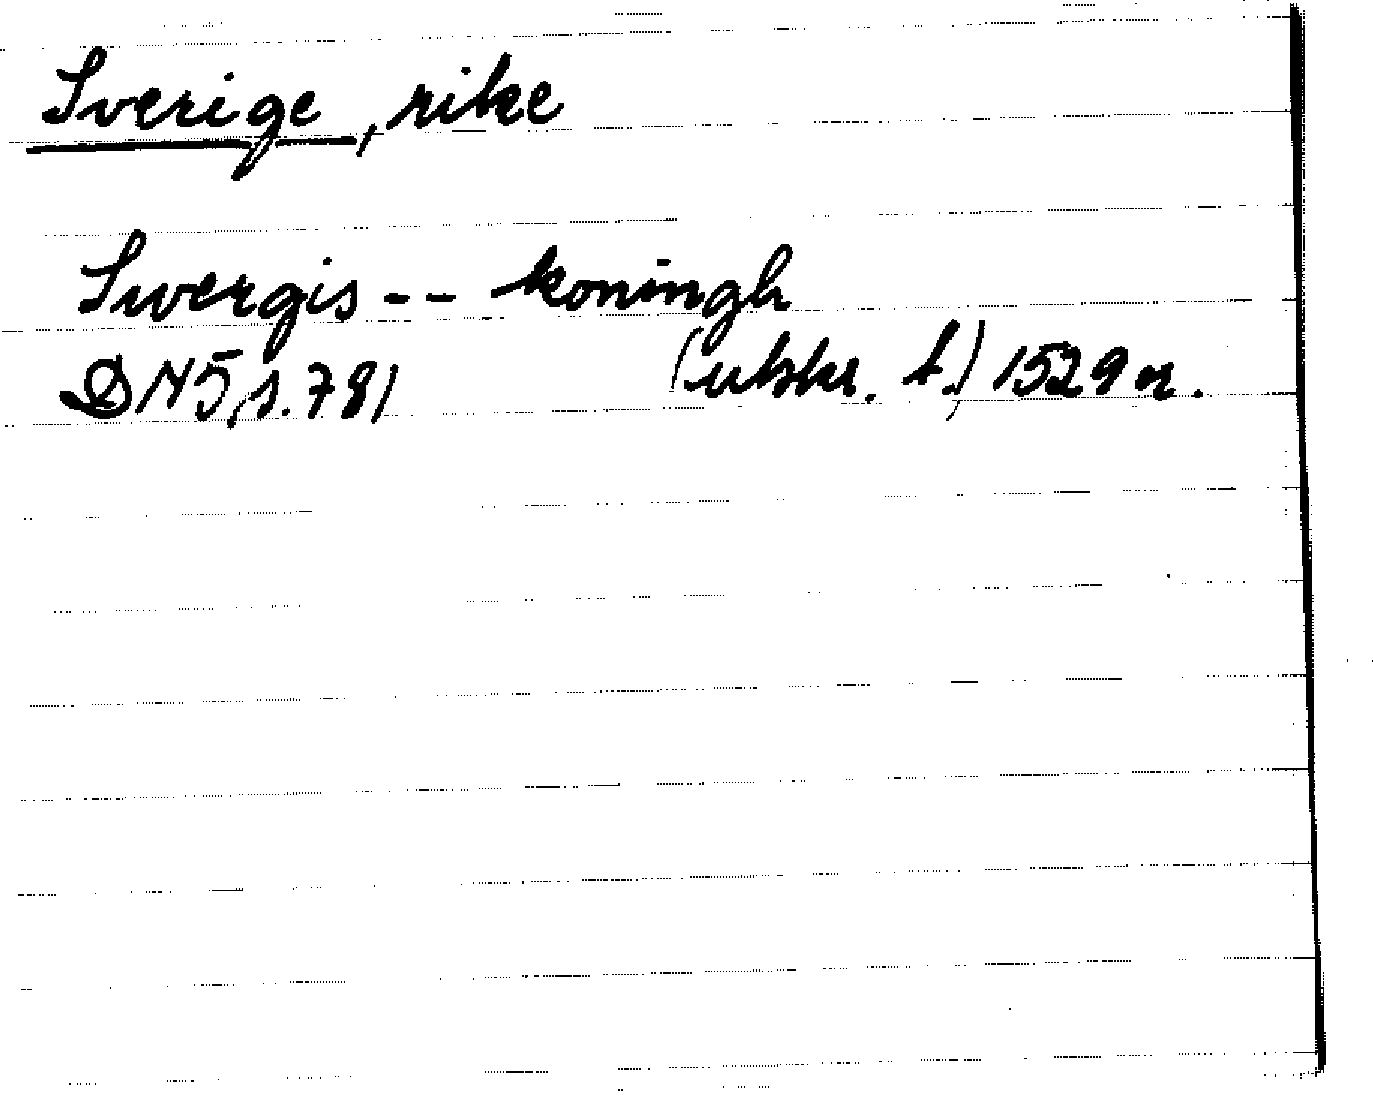 Sverige, rike
Swergis -- koningh
DN5, s. 781 (utskr. f.) 1529 or.